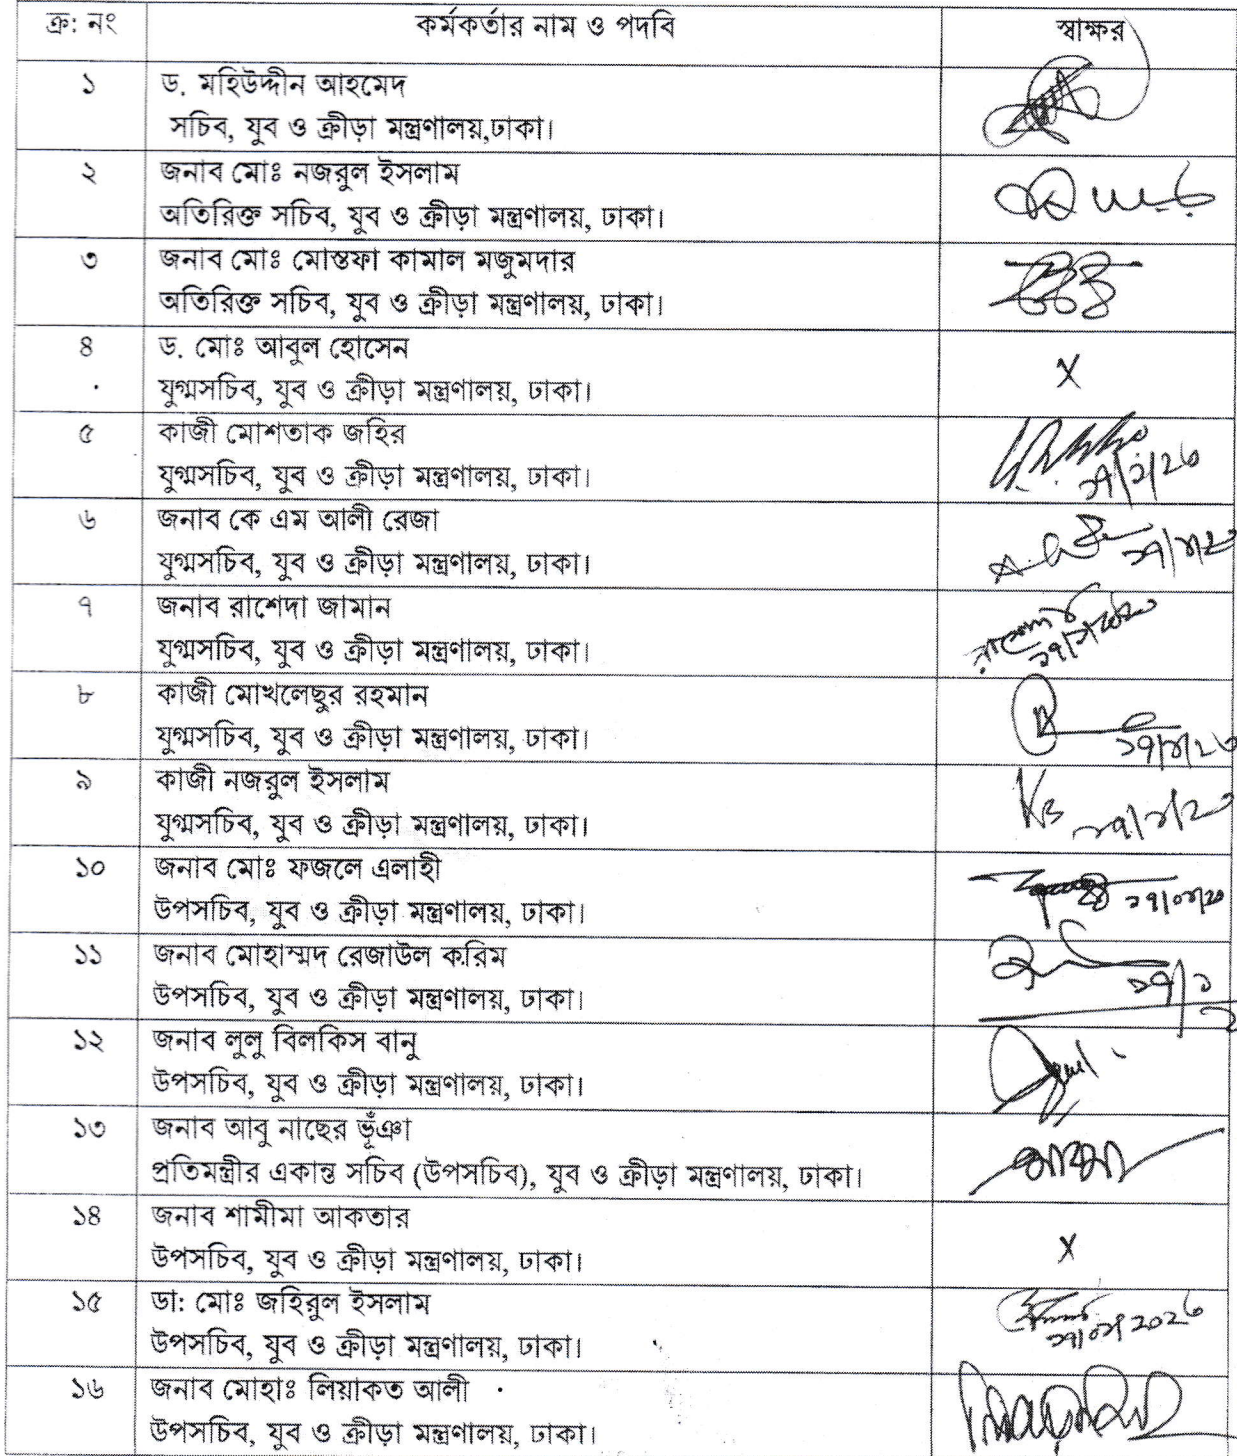 ক্র: নং কর্মকর্তার নাম ও পদবি স্বাক্ষর
১ ড. মহিউদ্দীন আহমেদ
সচিব, যুব ও ক্রীড়া মন্ত্রণালয়,ঢাকা।
২ জনাব মোঃ নজরুল ইসলাম
অতিরিক্ত সচিব, যুব ও ক্রীড়া মন্ত্রণালয়, ঢাকা।
৩ জনাব মোঃ মোস্তফা কামাল মজুমদার
অতিরিক্ত সচিব, যুব ও ক্রীড়া মন্ত্রণালয়, ঢাকা।
৪ ড. মোঃ আবুল হোসেন
যুগ্মসচিব, যুব ও ক্রীড়া মন্ত্রণালয়, ঢাকা। X
৫ কাজী মোশতাক জহির
যুগ্মসচিব, যুব ও ক্রীড়া মন্ত্রণালয়, ঢাকা।
৬ জনাব কে এম আলী রেজা
যুগ্মসচিব, যুব ও ক্রীড়া মন্ত্রণালয়, ঢাকা।
৭ জনাব রাশেদা জামান
যুগ্মসচিব, যুব ও ক্রীড়া মন্ত্রণালয়, ঢাকা।
৮ কাজী মোখলেছুর রহমান
যুগ্মসচিব, যুব ও ক্রীড়া মন্ত্রণালয়, ঢাকা।
৯ কাজী নজরুল ইসলাম
যুগ্মসচিব, যুব ও ক্রীড়া মন্ত্রণালয়, ঢাকা।
১০ জনাব মোঃ ফজলে এলাহী
উপসচিব, যুব ও ক্রীড়া মন্ত্রণালয়, ঢাকা।
১১ জনাব মোহাম্মদ রেজাউল করিম
উপসচিব, যুব ও ক্রীড়া মন্ত্রণালয়, ঢাকা।
১২ জনাব লুলু বিলকিস বানু
উপসচিব, যুব ও ক্রীড়া মন্ত্রণালয়, ঢাকা।
১৩ জনাব আবু নাছের ভূঁঞা
প্রতিমন্ত্রীর একান্ত সচিব (উপসচিব), যুব ও ক্রীড়া মন্ত্রণালয়, ঢাকা।
১৪ জনাব শামীমা আকতার
উপসচিব, যুব ও ক্রীড়া মন্ত্রণালয়, ঢাকা। X
১৫ ডা: মোঃ জহিরুল ইসলাম
উপসচিব, যুব ও ক্রীড়া মন্ত্রণালয়, ঢাকা।
১৬ জনাব মোহাঃ লিয়াকত আলী
উপসচিব, যুব ও ক্রীড়া মন্ত্রণালয়, ঢাকা।